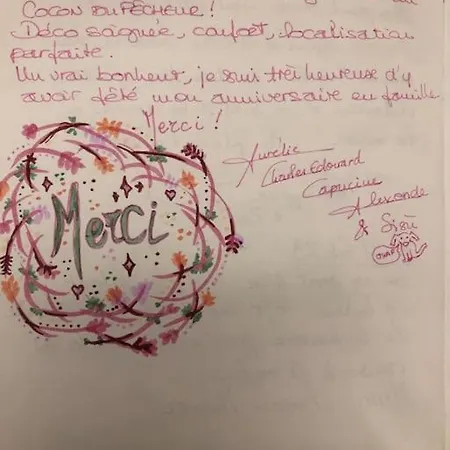 COCON DU PÊCHEUR !
Déco soignée, confort, localisation
parfaite.
Un vrai bonheur, je suis très heureuse d'y
avoir fêté mon anniversaire en famille
Merci !
Aurélie
Charles Edouard
Capucine
Alexandre
& Sisù
Merci